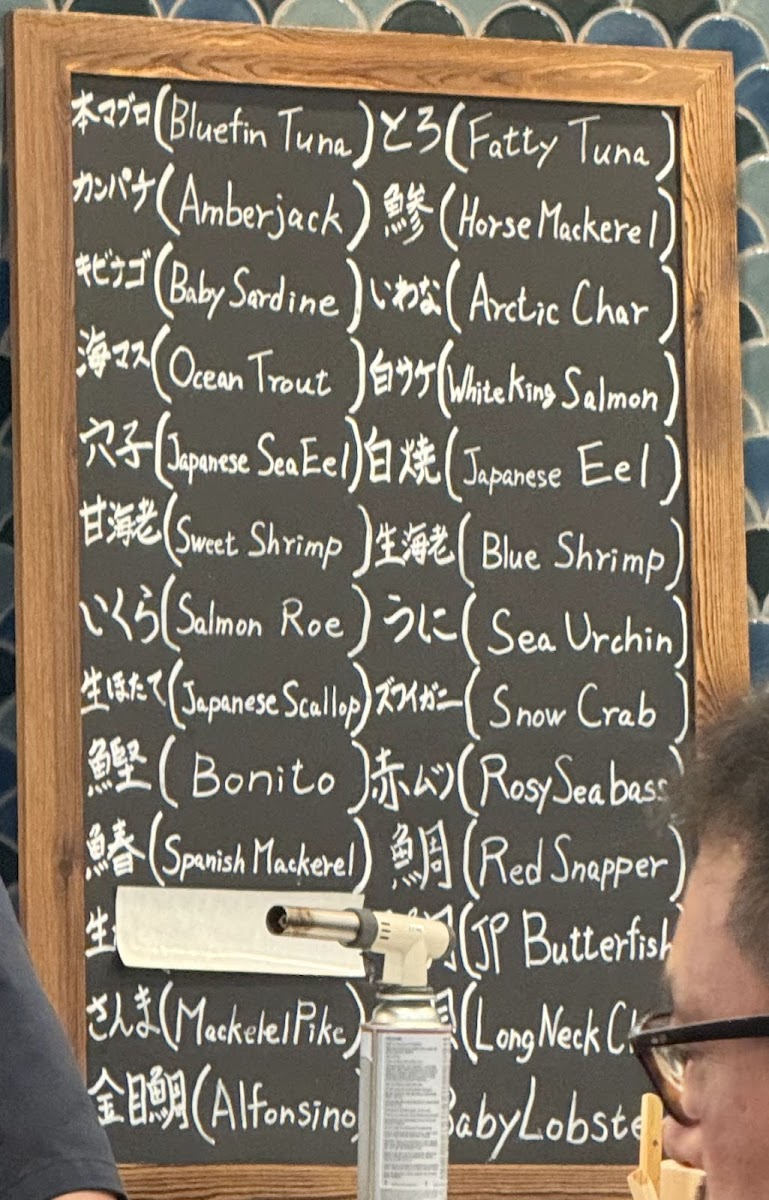 本マグロ(Bluefin Tuna) とろ(Fatty Tuna)
カンパチ(Amberjack) 鯵(Horse Mackerel)
キビナゴ(Baby Sardine) いわな(Arctic Char)
海マス(Ocean Trout) 白サケ(White King Salmon)
穴子(Japanese Sea Eel) 白焼(Japanese Eel)
甘海老(Sweet Shrimp) 生海老(Blue Shrimp)
いくら(Salmon Roe) うに(Sea Urchin)
生ほたて(Japanese Scallop) ズワイガニ(Snow Crab)
鰹(Bonito) 赤ムツ(Rosy Seabass
鰆(Spanish Mackerel) 鯛(Red Snapper)
生 (JP Butterfish
さんま(Mackelel Pike) (Long Neck
金目鯛(Alfonsino Baby Lobste